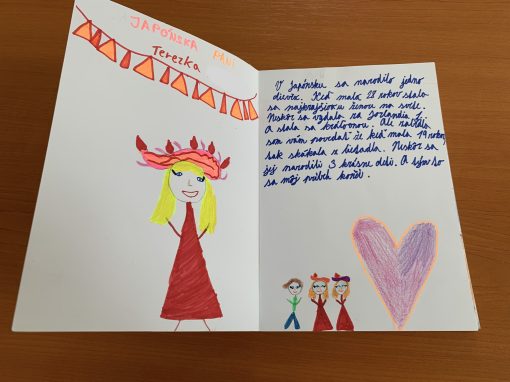 JAPÓNSKA PANI
Terezka
V Japónsku sa narodilo jedno
dievča. Keď mala 28 rokov stala
sa najkrajšiou ženou na svete.
Neskôr sa vydala na
A stala sa kráľovnou. Ale zabudla
som vám povedať že keď mala 19 rokov,
tak skákala z lietadla. Neskôr sa
jej narodili 3 krásne deti. A týmto
sa môj príbeh končí.